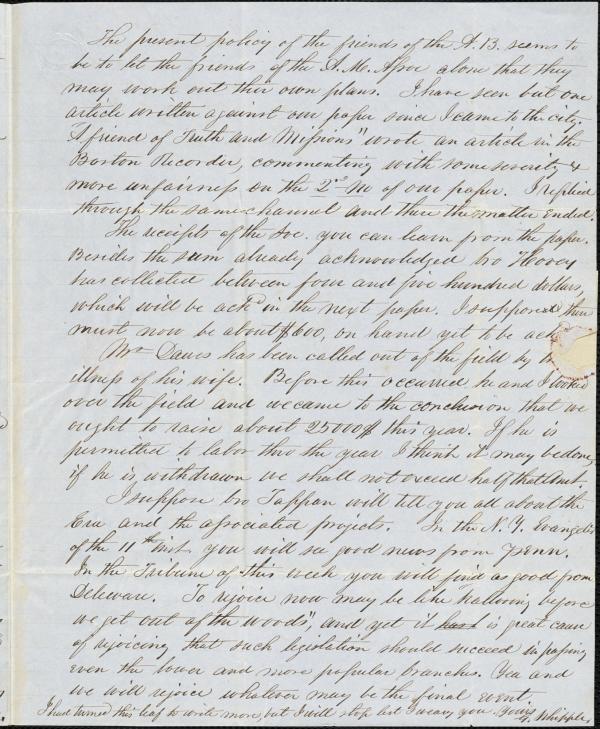 The present policy of the friends of the A.B. seems to
be to let the friends of the A.M. Assoc alone that they
may work out their own plans. I have seen but one
article written against our paper since I came to the city.
"A friend of Truth and Missions" wrote an article in the
Boston Recorder, commenting with some severity &
more unfairness on the 2d No of our paper. I replied
through the same channel and there the matter ended.
The receipts of the Soc. you can learn from the paper.
Besides the sum already acknowledged bro Hovey
has collected between four and five hundred dollars,
which will be ackd in the next paper. I suppose there
must now be about $600, on hand yet to be ack
Mr Dawes has been called out of the field by
illness of his wife. Before this occurred he and I looked
over the field and we came to the conclusion that we
ought to raise about 25000$ this year. If he is
permitted to labor thro the year I think it may be done,
if he is withdrawn we shall not exceed half that Amt.
I suppose bro Tappan will tell you all about the
Era and the associated projects. In the N.Y. Evangelis
of the 11th inst you will see good news from Penn.
In the Tribune of this week you will find as good from
Deleware. To rejoice now may be like hallowing before
we get out of the woods", and yet it is great cause
of rejoicing that such legislation should succeed in passing
even the lower and more popular branches. Yea and
we will rejoice whatever may be the final event.
I had turned this leaf to write more, but I will stop lest I weary you. Yours G. Whipple.